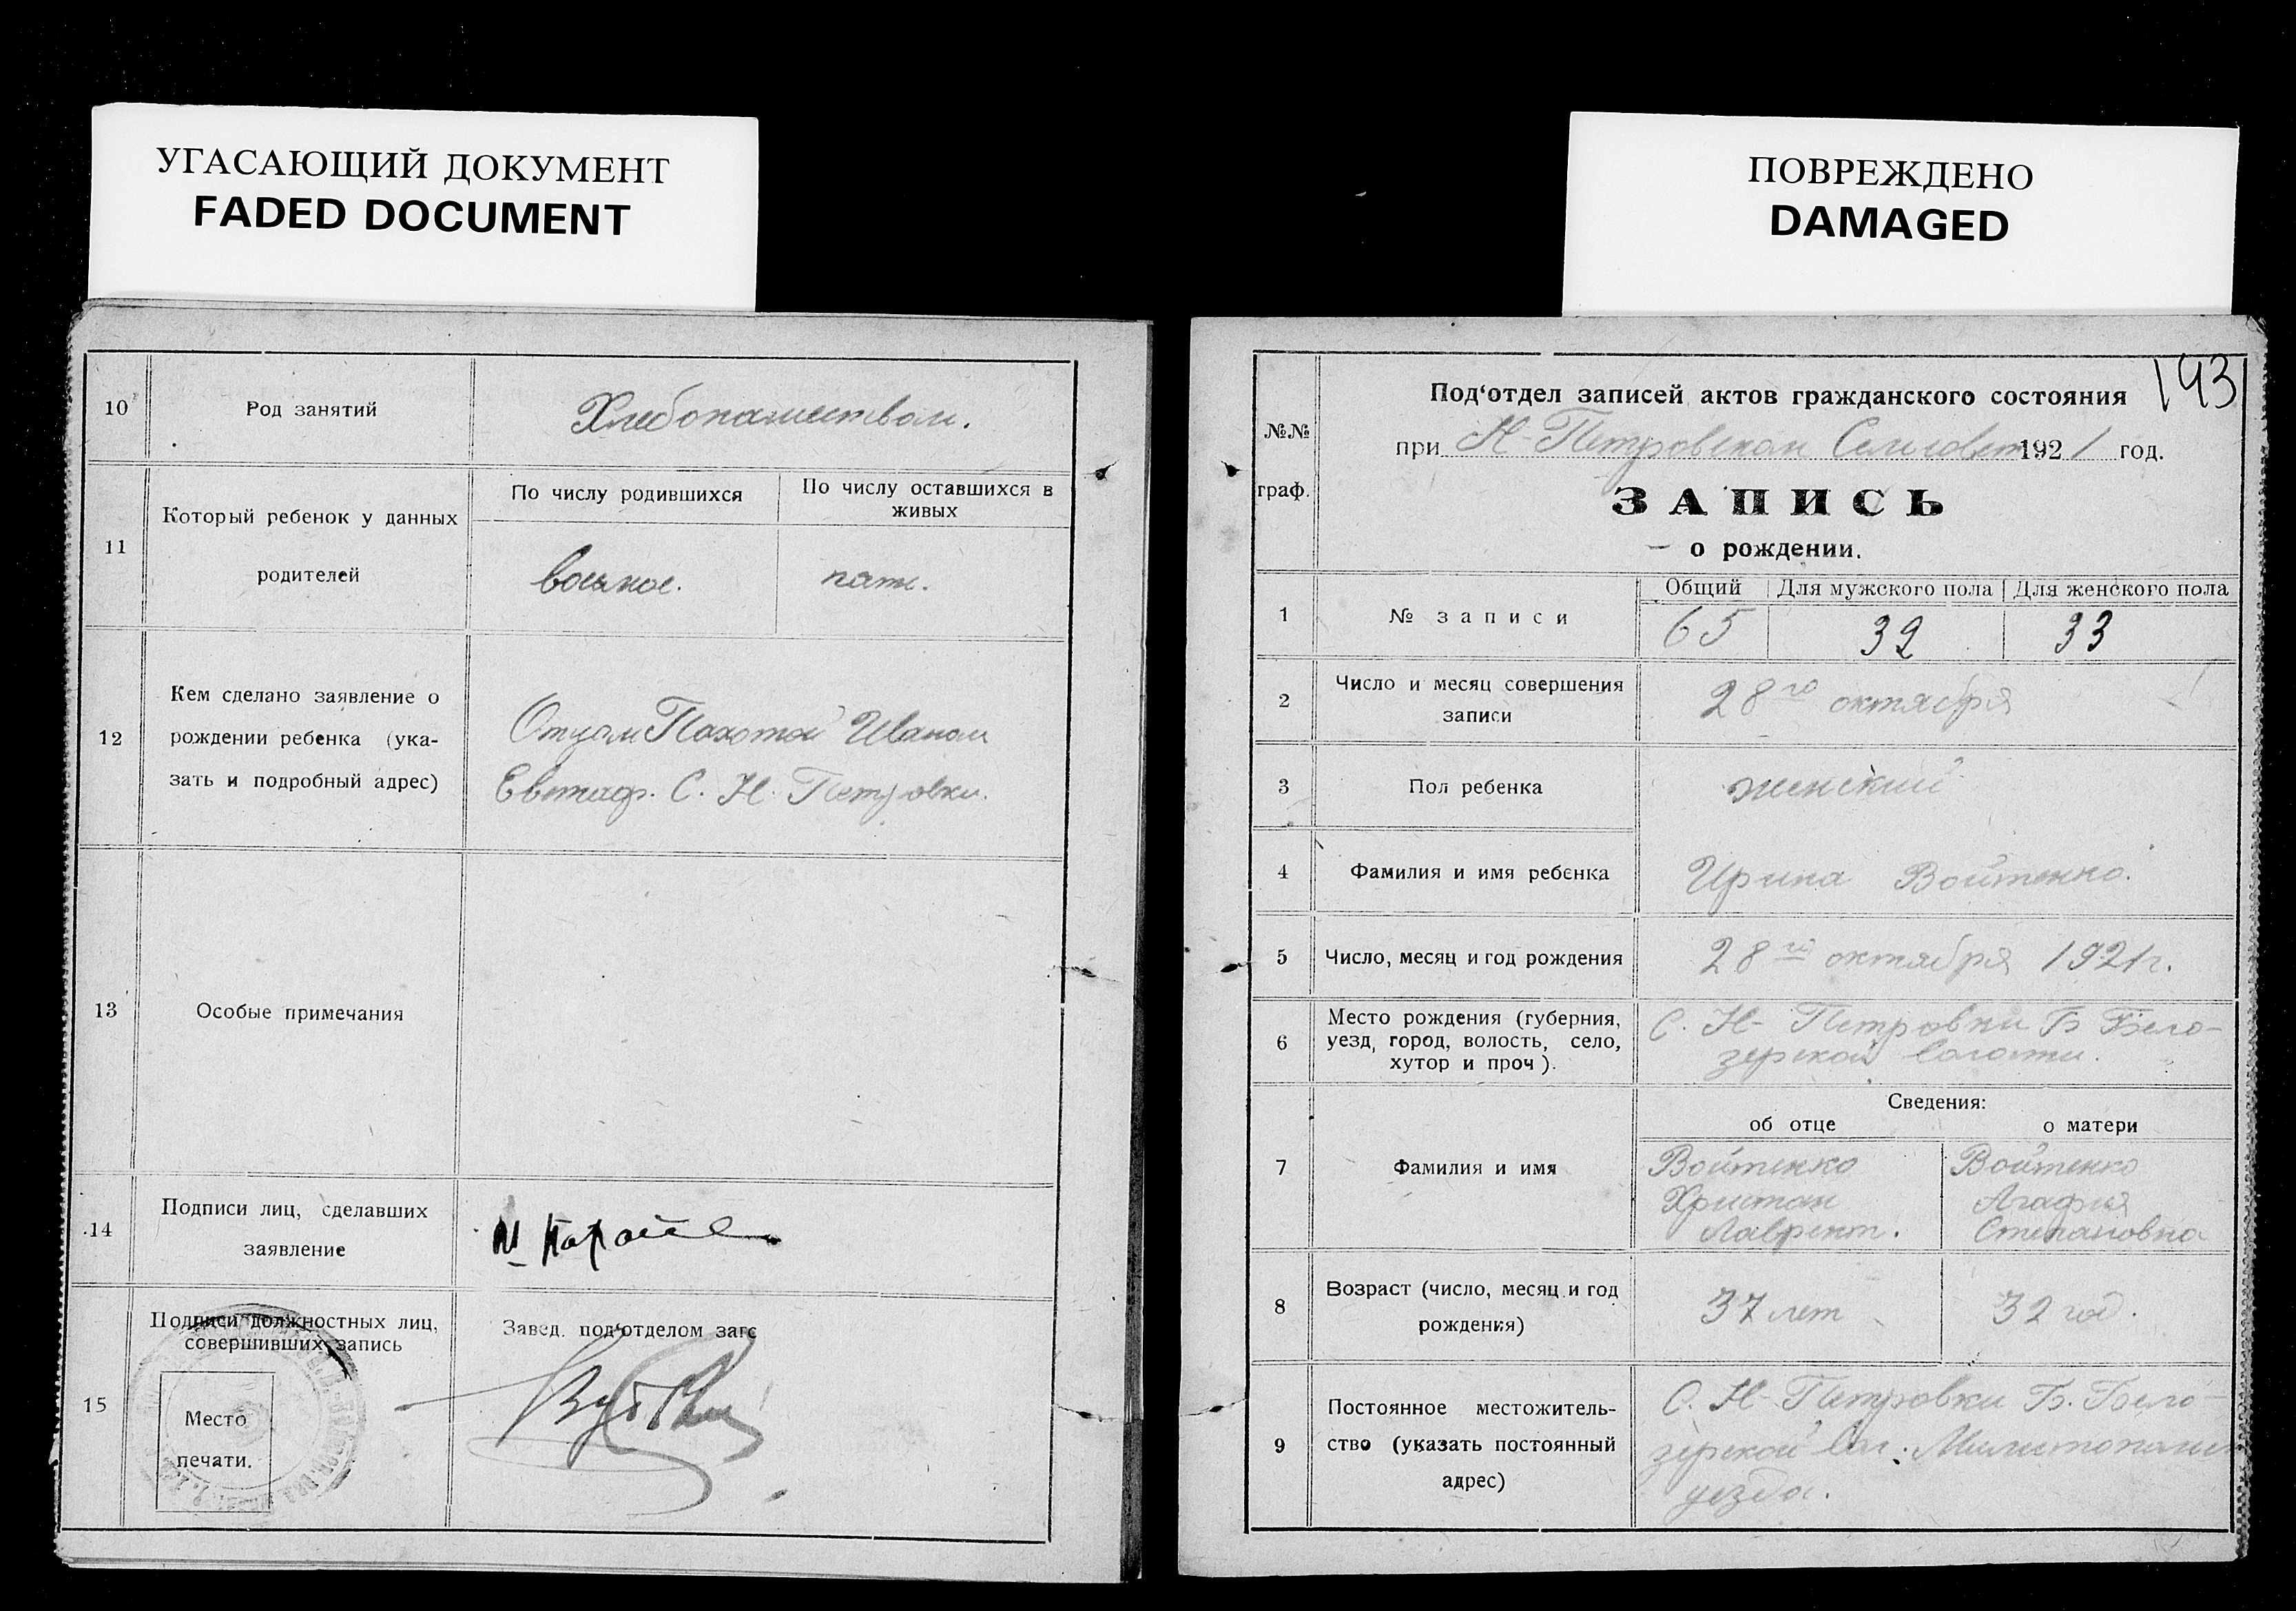 УГАСАЮЩИЙ ДОКУМЕНТ
FADED DOCUMENT
10
Род занятий
Хлебопашеством.
11
Который ребенок у данных
родителей
По числу родившихся
По числу оставшихся в
живых
восьмое.
пять.
12
Кем сделано заявление о
рождении ребенка (ука-
зать и подробный адрес)
Отцом Пахотой Иваном
Евстаф. С. Н. Петровки.
13
Особые примечания
14
Подписи лиц, сделавших
заявление
15
Подписи должностных лиц,
совершивших запись
Место
печати.
Завед. под‘отделом загс
ПОВРЕЖДЕНО
DAMAGED
193
№№
граф.
Под‘отдел записей актов гражданского состояния
при Н-Петровском 1921 год.
ЗАПИСЬ
о рождении.
1
№ записи
Общий
Для мужского пола
Для женского пола
65
32
33
2
Число и месяц совершения
записи
28го октября
3
Пол ребенка
женский
4
Фамилия и имя ребенка
Ирина Войтенко.
5
Число, месяц и год рождения
28го октября 1921г.
6
Место рождения (губерния,
уезд, город, волость, село,
хутор и проч).
С. Н-Петровки Б Бело-
зерской волости.
Сведения:
об отце
о матери
7
Фамилия и имя
Войтенко
Христан
Лаврент.
Войтенко
Агафия
Степановна
8
Возраст (число, месяц и год
рождения)
37 лет
32 год.
9
Постоянное местожитель-
ство (указать постоянный
адрес)
С. Н-Петровки Б. Бело-
зерской вол.
уезда.